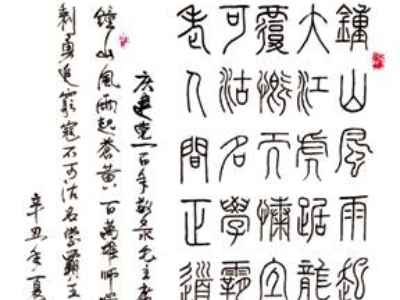 鍾山風雨起
大江虎踞龍
覆慨而慷宜
可沽名學霸
老人間正道
庆建党一百年敬录毛主席
鐘山風雨起蒼黃百萬雄師過
剩勇追窮寇不可沽名學霸王
辛丑年夏